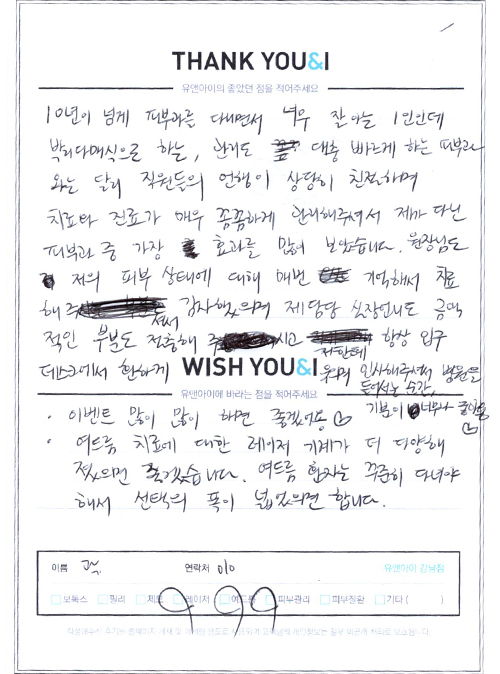 THANK YOU&I
유앤아이의 좋았던 점을 적어주세요
10년이 넘게 피부과를 다니면서 너무 잘 아는 1인인데
박리다매식으로 하는, 관리도 대충 빠르게 하는 피부과
와는 달리 직원분들의 언행이 상당히 친절하며
치료와 진료가 매우 꼼꼼하게 관리해주셔서 제가 다닌
피부과 중 가장 효과를 많이 보았습니다. 원장님도
저의 피부 상태에 대해 매번 기억해서 치료
해주셔서 감사했으며 제 담당 실장언니도 금액
적인 부분도 절충해 주시고 항상 입구
데스크에서 환하게 저한테 인사해주셔서 병원을
들어서는 순간, 기분이 너무나 좋아용
WISH YOU&I
유앤아이에 바라는 점을 적어주세요
· 이벤트 많이 많이 하면 좋겠어용
· 여드름 치료에 대한 레이저 기계가 더 다양해
졌으면 좋겠습니다. 여드름 환자는 꾸준히 다녀야
해서 선택의 폭이 넓었으면 합니다.
이름 연락처 010 유앤아이 강남점
보톡스 필러 제모 레이저 여드름 피부관리 피부질환 기타 ( )
999